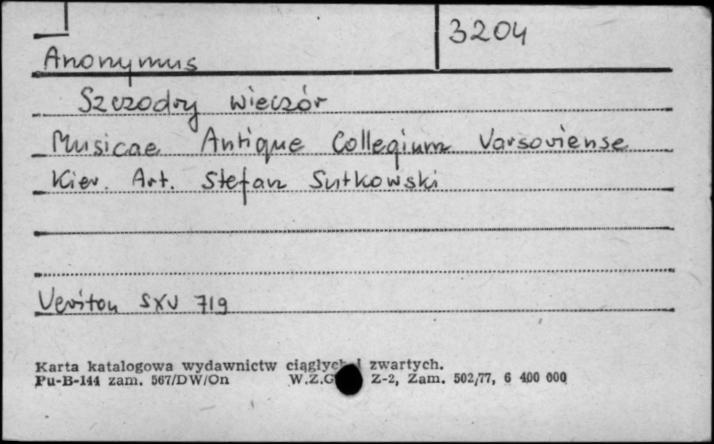 3204
Anonymus
Szczodry wieczór
Musicae Antique Collegium Varsoviense
Kier. Art. Stefan Sutkowski
Veriton SXV 719
Karta katalogowa wydawnictw ciągłych i zwartych.
Pu-B-144 zam. 567/DW/On W.Z.G. Z-2, Zam. 502/77, 6 400 000